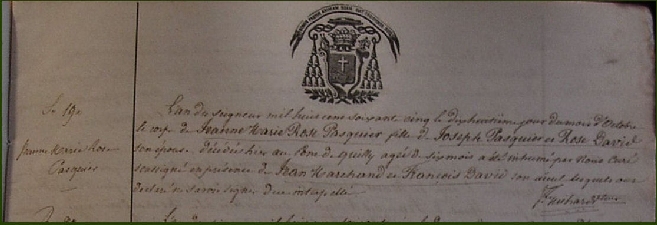 Le 19e
Jeanne Marie Rose
Pasquier
L'an du seigneur mil huit cent soixante cinq le dixhuitième jour du mois d'Octobre
le corps de Jeanne Marie Rose Pasquier fille de Joseph Pasquier et Rose David
son épouse, décédée hier au de quilly agée de six mois a été inhumé par Nous Curé
soussigné en présence de Jean Marchand et François David son aïeul lesquels ont
déclaré ne savoir signer